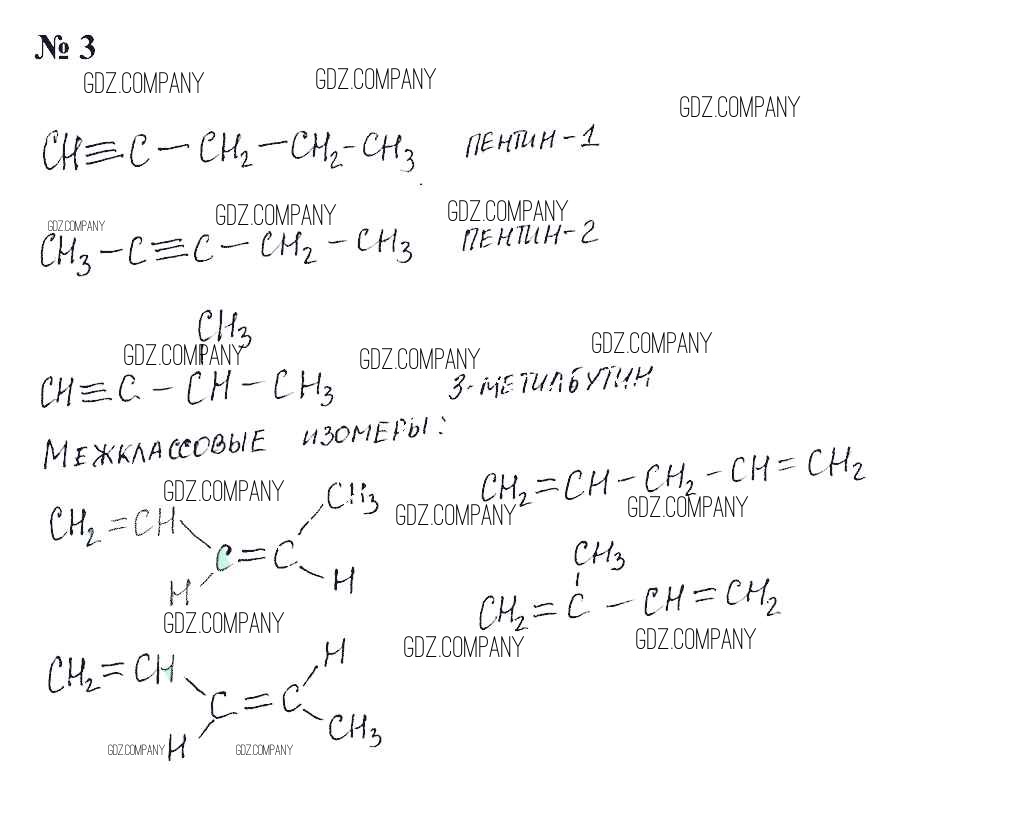 № 3
GDZ.COMPANY GDZ.COMPANY GDZ.COMPANY
CH≡C－CH₂－CH₂-CH₃ ПЕНТИН-1
GDZ.COMPANY GDZ.COMPANY GDZ.COMPANY
CH₃－C≡C－CH₂－CH₃ ПЕНТИН-2
CH₃
GDZ.COMPANY GDZ.COMPANY GDZ.COMPANY
CH≡C－CH－CH₃ 3-МЕТИЛБУТИН
МЕЖКЛАССОВЫЕ ИЗОМЕРЫ:
GDZ.COMPANY CH₃ CH₂=CH－CH₂－CH=CH₂
CH₂=CH GDZ.COMPANY GDZ.COMPANY
C=C CH₃
H H
CH₂=C－CH=CH₂
GDZ.COMPANY GDZ.COMPANY GDZ.COMPANY
CH₂=CH H
C=C
H CH₃
GDZ.COMPANY GDZ.COMPANY